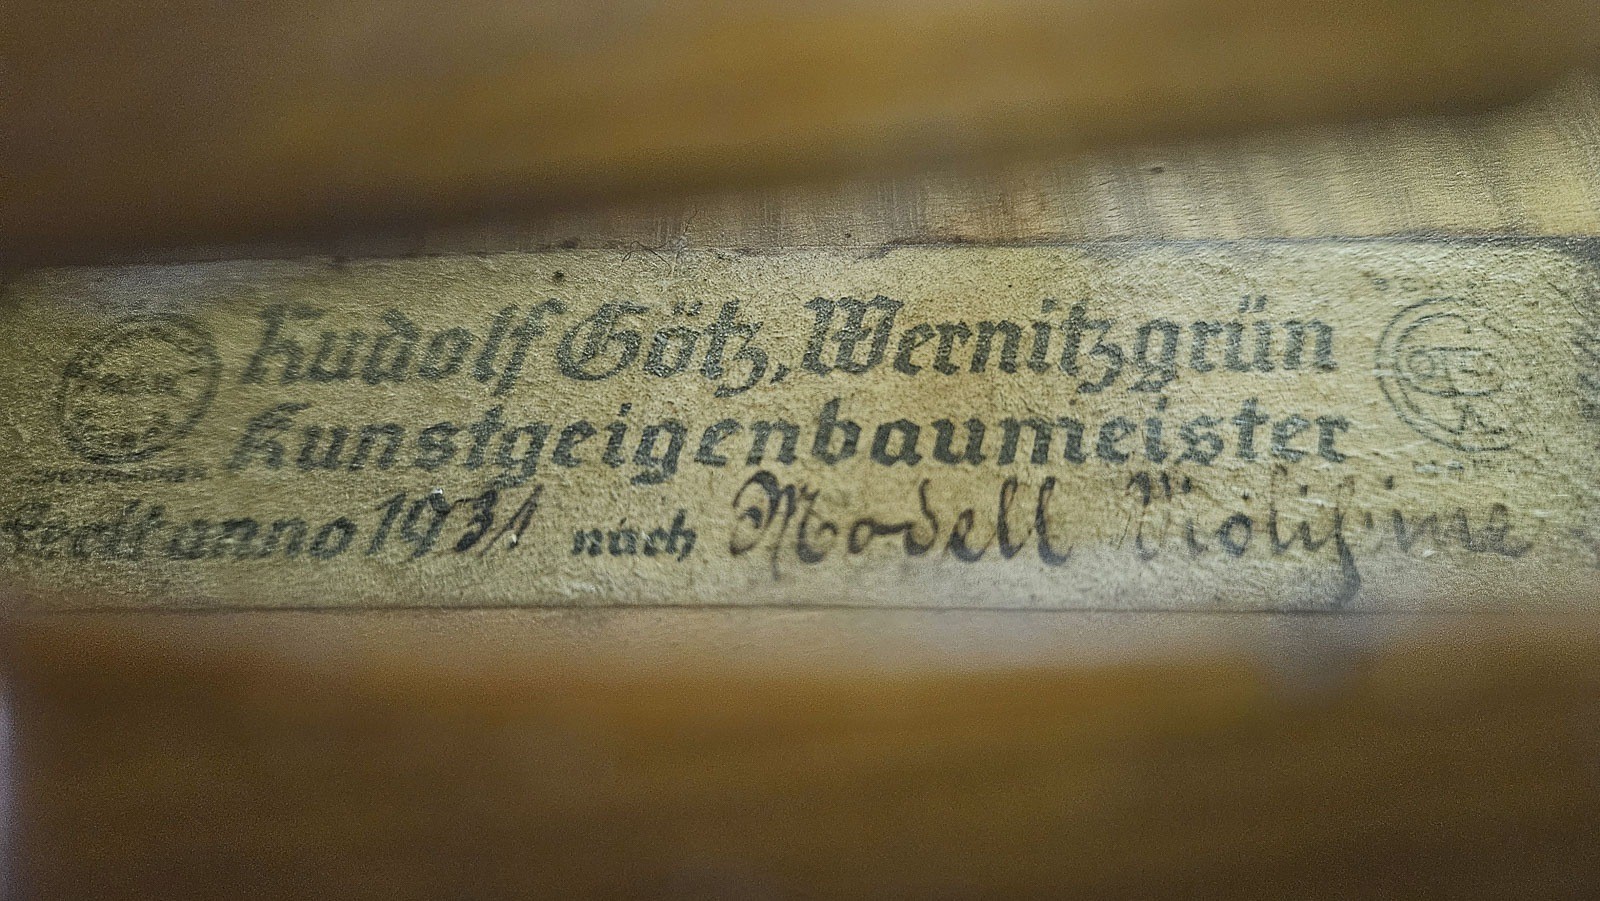 Rudolf Götz, Wernitzgrün
Kunstgeigenbaumeister
anno 1931 nach Modell